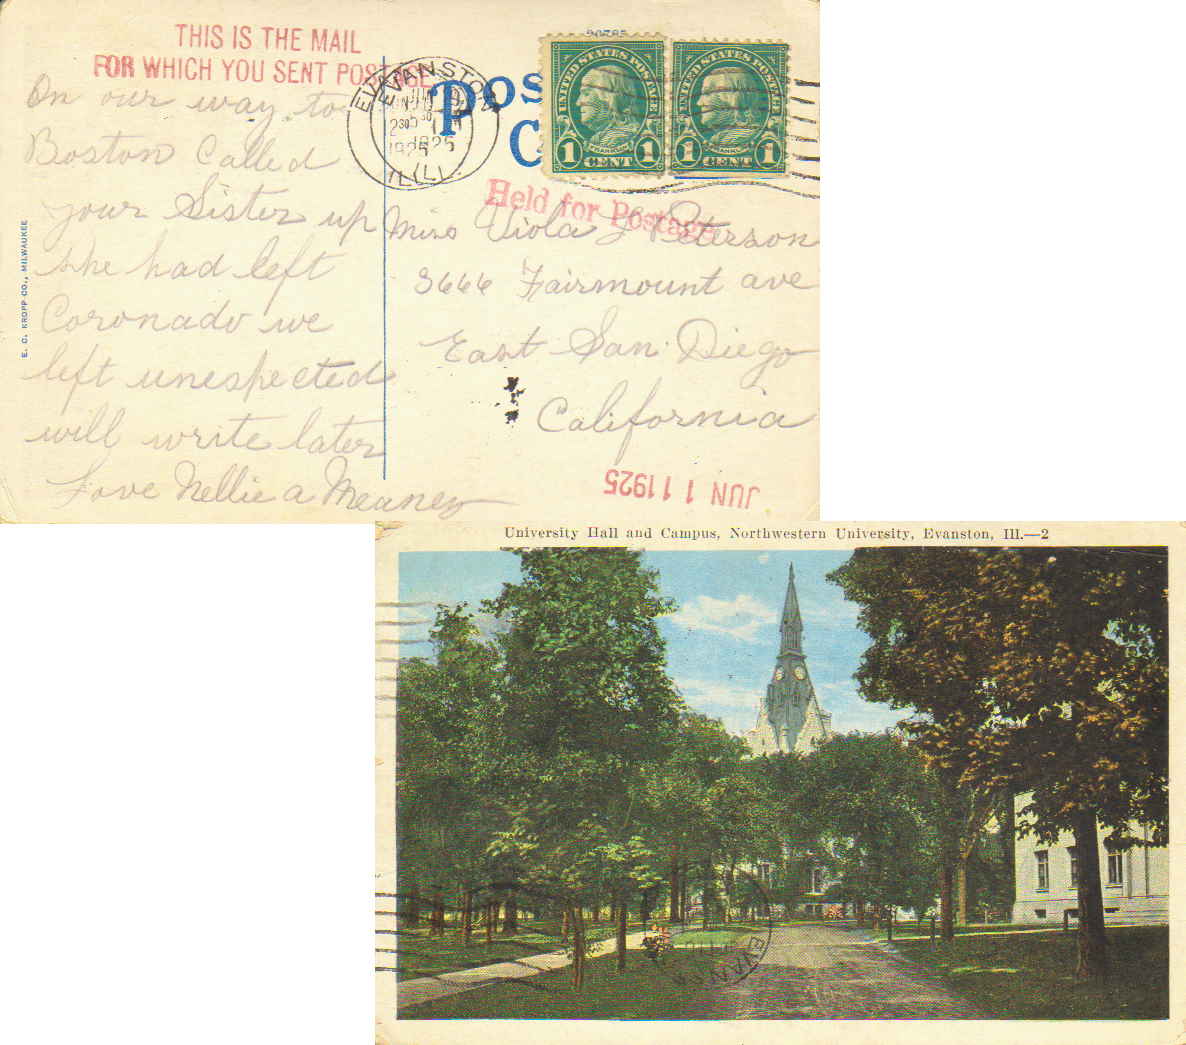 THIS IS THE MAIL
FOR WHICH YOU SENT POSTAGE
On our way to
Boston Called
your Sister up
she had left
Coronado we
left unexspected
will write later
Love Nellie a Meaney
E. C. KROPP CO., MILWAUKEE
EVANSTON
EVANSTON
JUN
230
1925
1925
ILL.
ILL.
Pos
C
20785
UNITED STATES POSTAGE
FRANKLIN
1 CENT 1
UNITED STATES POSTAGE
FRANKLIN
1 CENT 1
Held for Postage
Miss Viola Peterson
3666 Fairmount ave
East San Diego
California
JUN 11 1925
University Hall and Campus, Northwestern University, Evanston, Ill.—2
EVANSTON